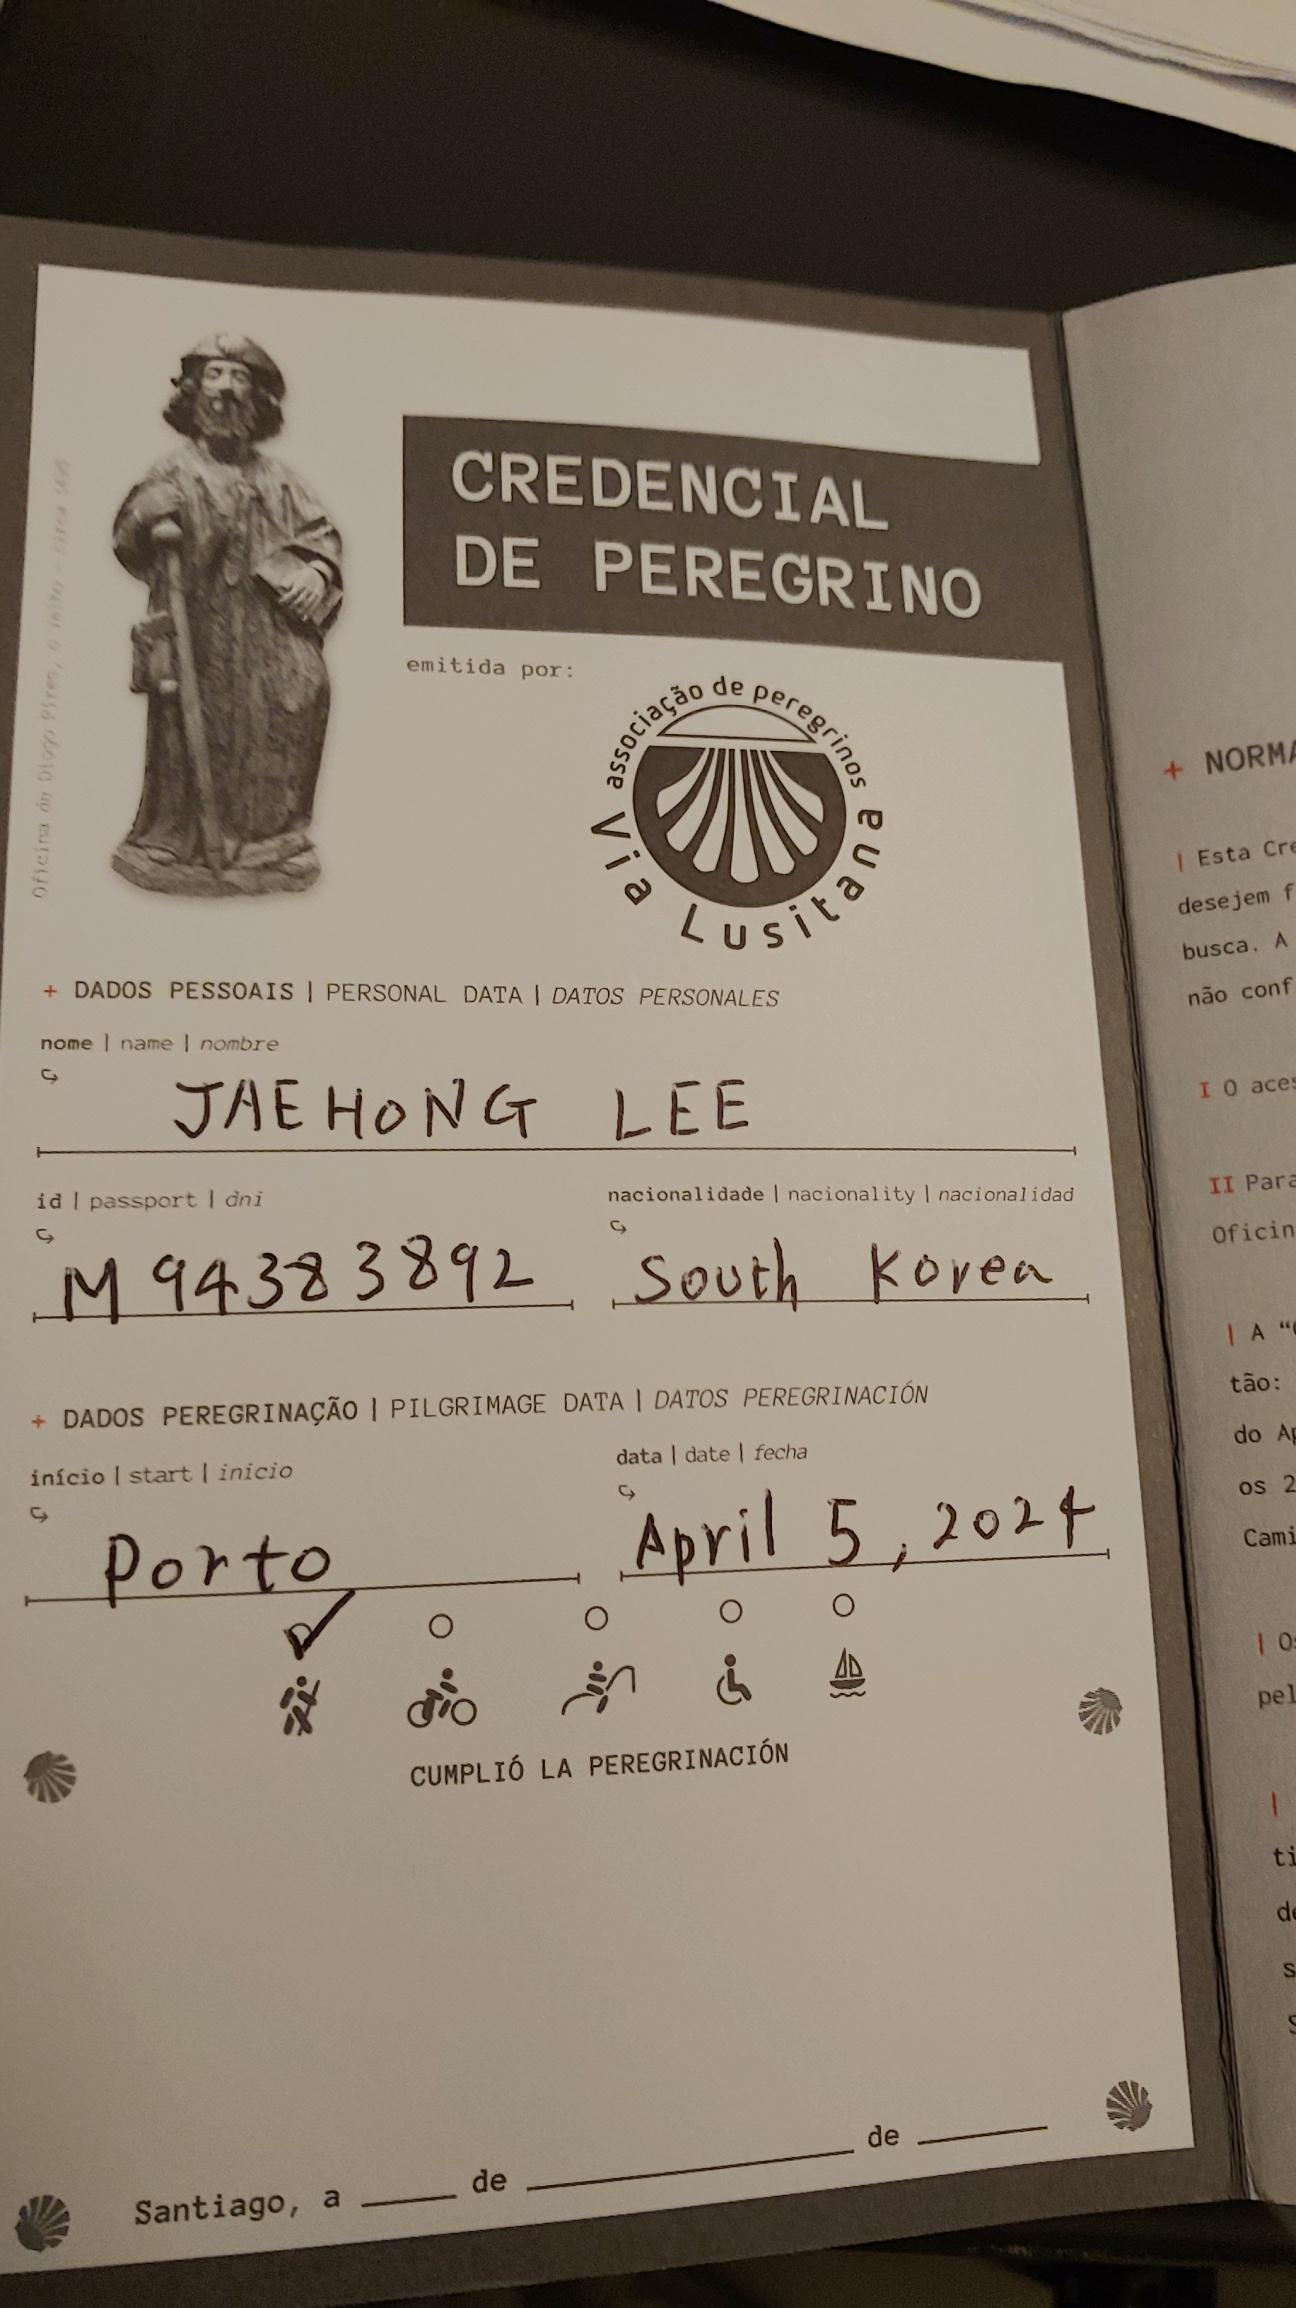 CREDENCIAL
DE PEREGRINO
emitida por:
associação de peregrinos
Via Lusitana
Oficina de Diogo Pires, o Moço - circa 1495
+ DADOS PESSOAIS | PERSONAL DATA | DATOS PERSONALES
nome | name | nombre
JAEHONG LEE
id | passport | dni
nacionalidade | nacionality | nacionalidad
M94383892
South Korea
+ DADOS PEREGRINAÇÃO | PILGRIMAGE DATA | DATOS PEREGRINACIÓN
início | start | inicio
data | date | fecha
Porto
April 5, 2024
CUMPLIÓ LA PEREGRINACIÓN
Santiago, a ____ de ____________ de ____
+ NORMA
| Esta Cre
desejem f
busca. A
não conf
I O aces
II Para
Oficin
| A “
tão:
do Ap
os 2
Cami
| Os
pel
|
ti
de
s
S